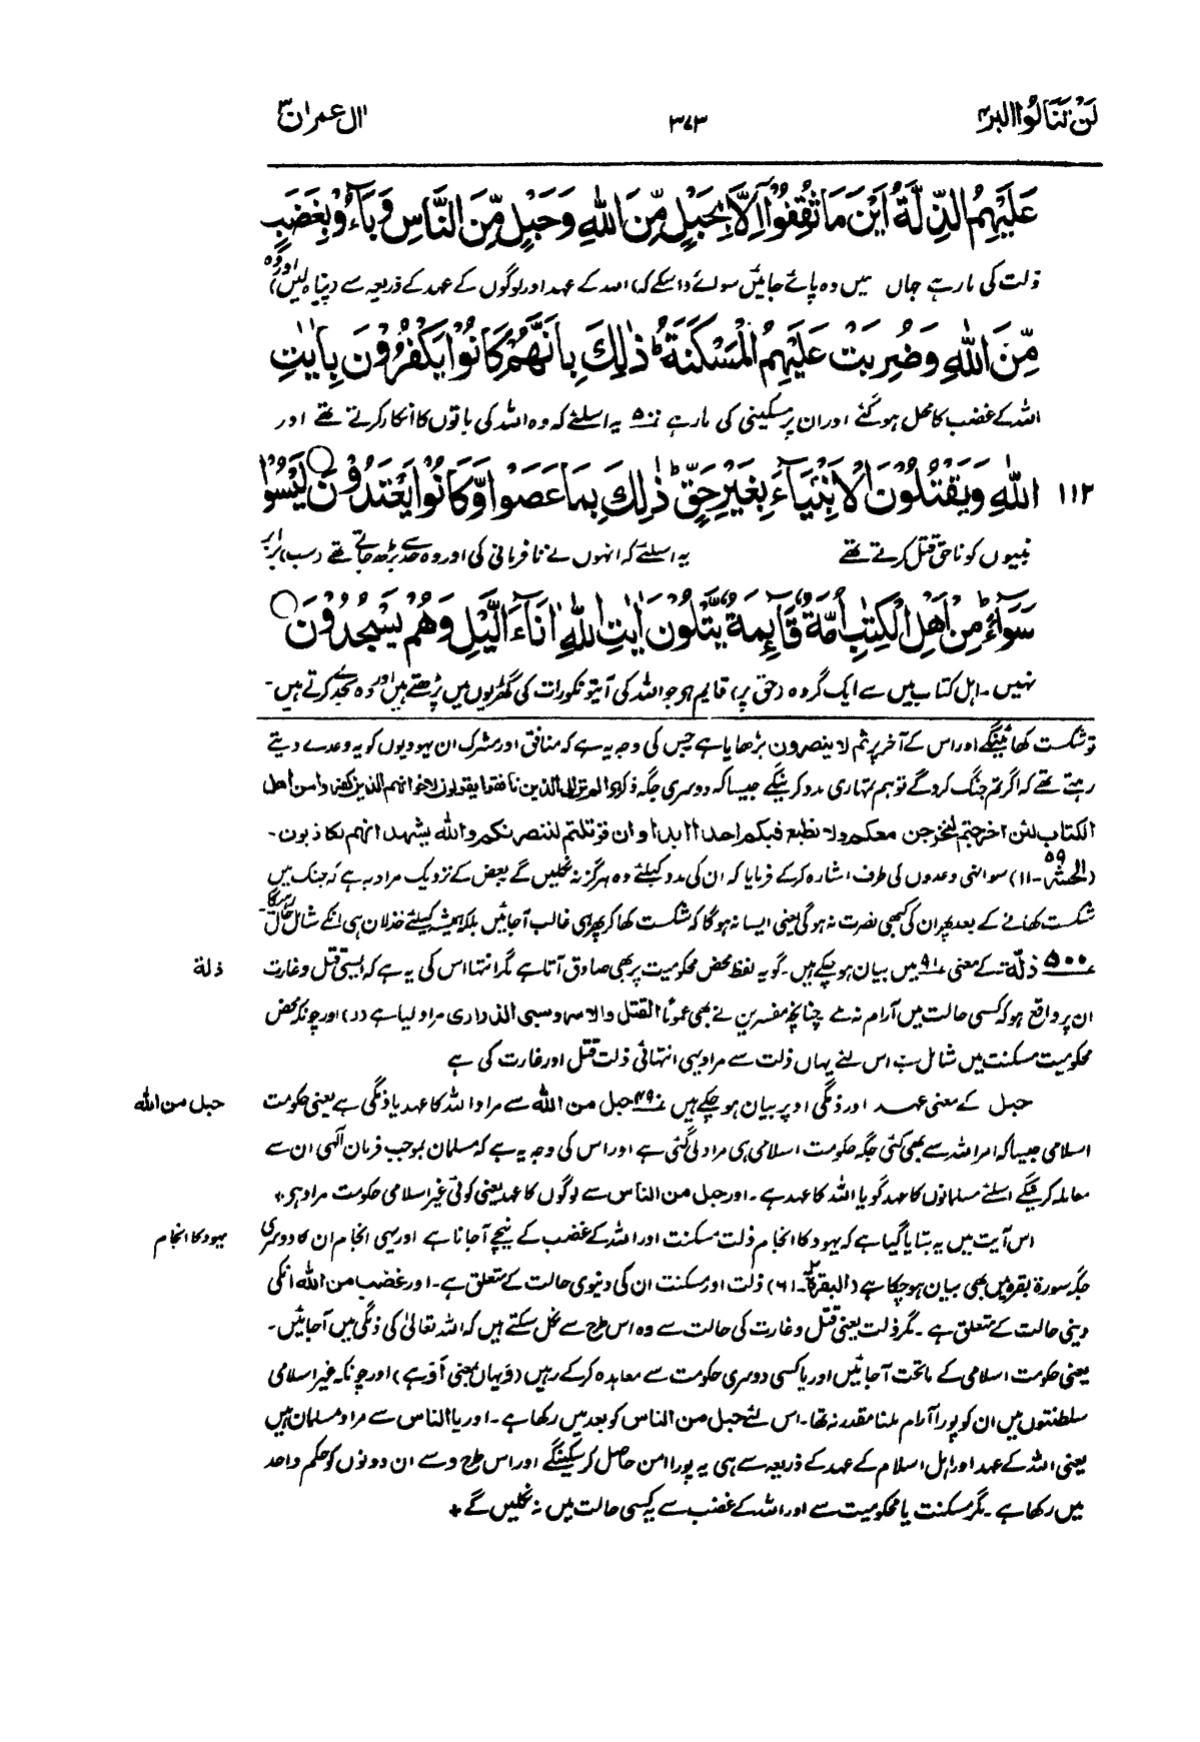 لَنْ تَنَالُوا البر ۴
۳۷۳
اٰل عمران ۳
عَلَيْهِمُ الذِّلَّةُ اَيْنَ مَا ثُقِفُوْٓا اِلَّا بِحَبْلٍ مِّنَ اللّٰهِ وَحَبْلٍ مِّنَ النَّاسِ وَبَآءُوْ بِغَضَبٍ
ذلت کی مار ہے جہاں کہیں وہ پائے جائیں سوائے اس کے کہ اللہ کے عہد اور لوگوں کے عہد کے ذریعہ سے (پناہ لیں) اور وہ
مِّنَ اللّٰهِ وَضُرِبَتْ عَلَيْهِمُ الْمَسْكَنَةُ ؕ ذٰلِكَ بِاَنَّهُمْ كَانُوْا يَكْفُرُوْنَ بِاٰيٰتِ
اللہ کے غضب کا محل ہو گئے اور ان پر مسکینی کی مار ہے ۵۰۰ یہ اسلئے کہ وہ اللہ کی باتوں کا انکار کرتے تھے اور
۱۱۲ اللّٰهِ وَيَقْتُلُوْنَ الْاَنْۢبِيَآءَ بِغَيْرِ حَقٍّ ؕ ذٰلِكَ بِمَا عَصَوْا وَّكَانُوْا يَعْتَدُوْنَ ○ لَيْسُوْا
نبیوں کو ناحق قتل کرتے تھے یہ اسلئے کہ انہوں نے نافرمانی کی اور وہ حد سے بڑھ جاتے تھے (سب) برابر
سَوَآءً ؕ مِنْ اَهْلِ الْكِتٰبِ اُمَّةٌ قَآئِمَةٌ يَّتْلُوْنَ اٰيٰتِ اللّٰهِ اٰنَآءَ الَّيْلِ وَهُمْ يَسْجُدُوْنَ ○
نہیں۔ اہل کتاب میں سے ایک گروہ (حق پر) قایم ہو جو اللہ کی آیتوں کو رات کی گھڑیوں میں پڑھتے ہیں اور وہ سجدے کرتے ہیں۔
تو شکست کھائینگے اور اس کے آخر پر ثم لا ینصرون بڑھایا ہے جس کی وجہ یہ ہے کہ منافق اور مشرک ان یہودیوں کو یہ وعدے دیتے
رہتے تھے کہ اگر تم جنگ کرو گے تو ہم تمہاری مدد کرینگے جیسا کہ دوسری جگہ ذکر ہے الم تر الی الذین نافقوا یقولون لاخوانھم الذین کفروا من اھل
الکتاب لئن اخرجتم لنخرجن معکم ولا نطیع فیکم احدا ابدا وان قوتلتم لننصرنکم واللہ یشھد انھم لکاذبون۔
(الحشر ۵۹-۱۱) سو انہی وعدوں کی طرف اشارہ کر کے فرمایا کہ ان کی مدد کیلئے وہ ہرگز نہ نکلیں گے بعض کے نزدیک مراد یہ ہے کہ جنگ میں
شکست کھانے کے بعد پھر ان کی کبھی نصرت نہ ہوگی یعنی ایسا نہ ہوگا کہ شکست کھا کر پھر بھی غالب آجائیں بلکہ ہمیشہ کیلئے خذلان ہی انکے شامل حال رہیگا۔
۵۰۰ ذلّة کے معنی ۹۱ میں بیان ہو چکے ہیں۔ گو یہ لفظ محض محکومیت پر بھی صادق آتا ہے مگر انتہا اس کی یہ ہے کہ ایسی قتل و غارت
ذلة
ان پر واقع ہو کہ کسی حالت میں آرام نہ ملے چنانچہ مفسرین نے بھی عموماً القتل والاسر وسبی الذراری مراد لیا ہے (ر) اور چونکہ محض
محکومیت مسکنت میں شامل ہے اس لئے یہاں ذلت سے مراد یہی انتہائی ذلت قتل اور غارت کی ہے
حبل کے معنی عہد اور ذمگی اوپر بیان ہو چکے ہیں ۴۹۰ حبل من اللہ سے مراد اللہ کا عہد یا ذمگی ہے یعنی حکومت
حبل من اللہ
اسلامی جیسا کہ امر اللہ سے بھی کئی جگہ حکومت اسلامی ہی مراد لی گئی ہے اور اس کی وجہ یہ ہے کہ مسلمان بموجب فرمان الٰہی ان سے
معاملہ کرینگے اسلئے مسلمانوں کا عہد گویا اللہ کا عہد ہے۔ اور حبل من الناس سے لوگوں کا عہد یعنی کوئی غیر اسلامی حکومت مراد ہے۔
اس آیت میں یہ بتایا گیا ہے کہ یہود کا انجام ذلت مسکنت اور اللہ کے غضب کے نیچے آجانا ہے اور یہی انجام ان کا دوسری
یہود کا انجام
جگہ سورۃ بقرہ میں بھی بیان ہو چکا ہے (البقرۃ ۲-۶۱) ذلت اور مسکنت ان کی دنیوی حالت کے متعلق ہے۔ اور غضب من اللہ انکی
دینی حالت کے متعلق ہے۔ مگر ذلت یعنی قتل و غارت کی حالت سے وہ اس طرح سے نکل سکتے ہیں کہ اللہ تعالیٰ کی ذمگی میں آجائیں۔
یعنی حکومت اسلامی کے ماتحت آجائیں اور یا کسی دوسری حکومت سے معاہدہ کر کے رہیں (وَ یہاں بمعنی اَوْ ہے) اور چونکہ غیر اسلامی
سلطنتوں میں ان کو پورا آرام ملنا مقدر نہ تھا۔ اس لئے حبل من الناس کو بعد میں رکھا ہے۔ اور یا الناس سے مراد مسلمان ہیں
یعنی اللہ کے عہد اور اہل اسلام کے عہد کے ذریعہ سے ہی یہ پورا امن حاصل کر سکینگے اور اس طرح سے ان دونوں کو حکم واحد
میں رکھا ہے۔ مگر مسکنت یا محکومیت سے اور اللہ کے غضب سے یہ کسی حالت میں نہ نکلیں گے +